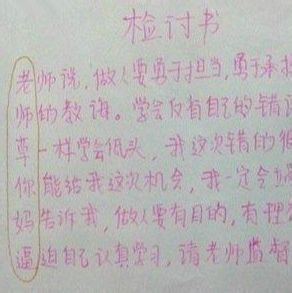 检讨书
老师说，做人要勇于担当，勇于承
师的教诲。学会反省自己的错
草一样学会低头，我这次错的很
你能给我这次机会，我一定会
妈告诉我，做人要有目的，有理
逼迫自己认真学习，请老师监督